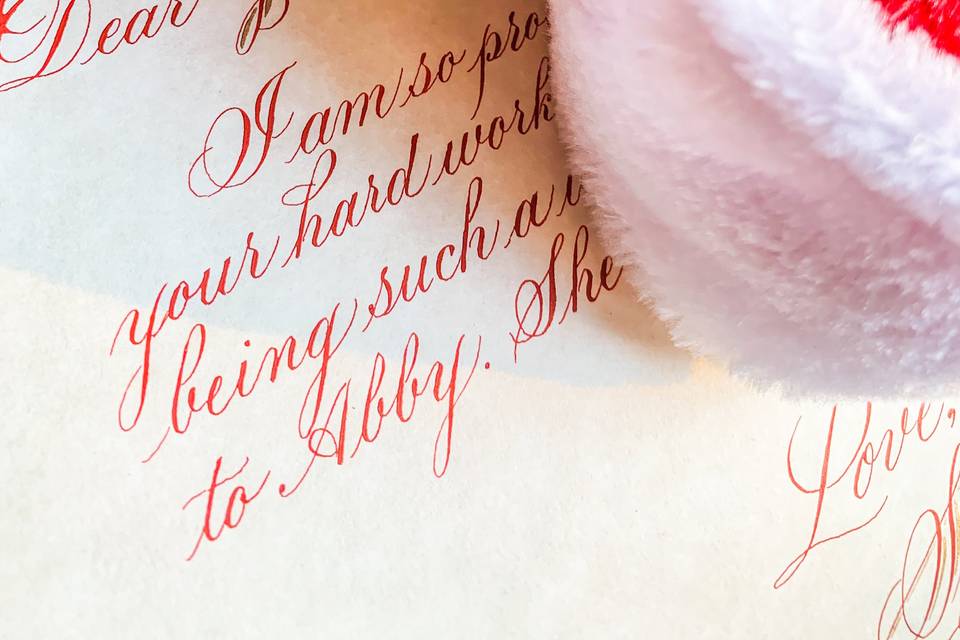 Dear
I am so
your hard work
being such a
to Abby. She
Love,